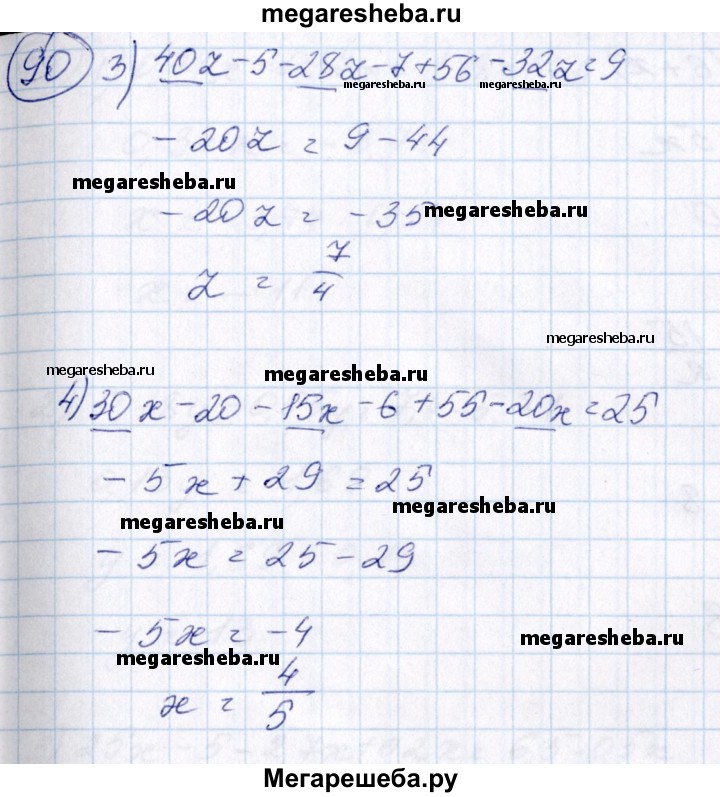 megaresheba.ru
90 3) 40z-5-28z-7+56-32z=9
megaresheba.ru megaresheba.ru
-20z=9-44
megaresheba.ru
-20z=-35
megaresheba.ru
z=7/4
megaresheba.ru
megaresheba.ru
megaresheba.ru
4) 30x-20-15x-6+55-20x=25
-5x+29=25
megaresheba.ru
megaresheba.ru
-5x=25-29
-5x=-4
megaresheba.ru
megaresheba.ru
x=4/5
Мегарешеба.ру